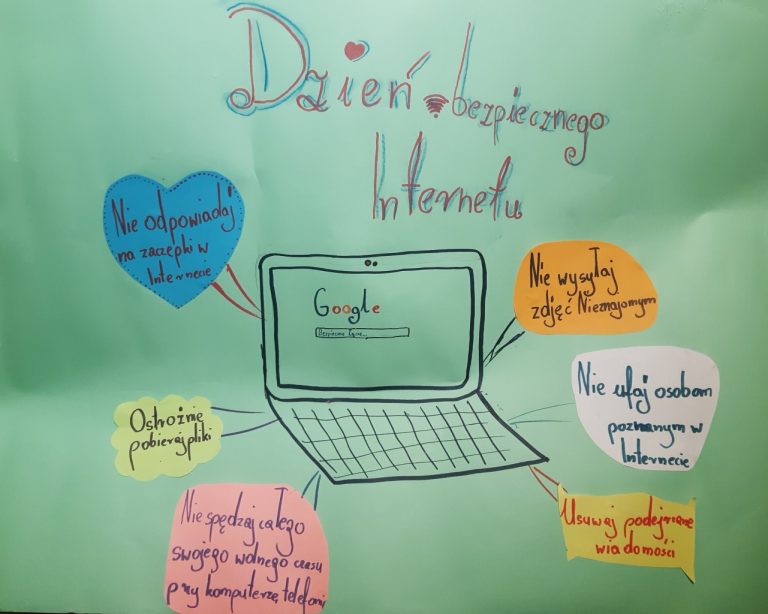 Dzień bezpiecznego
Internetu
Nie odpowiadaj
na zaczepki w
Internecie
Google
Nie wysyłaj
zdjęć Nieznajomym
Ostrożnie
pobieraj pliki
Nie ufaj osobom
poznanym w
Internecie
Nie spędzaj całego
swojego wolnego czasu
przy komputerze, telefonie
Usuwaj podejrzane
wiadomości